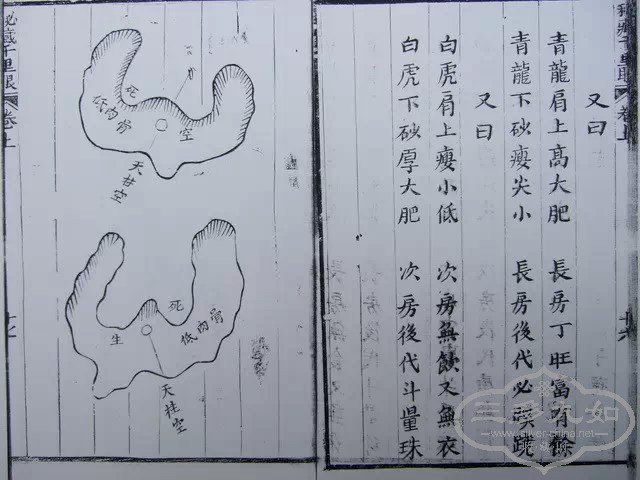 秘藏千里眼
卷上
又曰
青龍肩上高大肥 長房丁旺富有餘
青龍下砂瘦尖小 長房後代必
又曰
白虎肩上瘦小低 次房無飲又無衣
白虎下砂厚大肥 次房後代斗量珠
死
低肉骨
空
天柱空
死
生
低肉骨
天柱空
秘藏千里眼
卷上